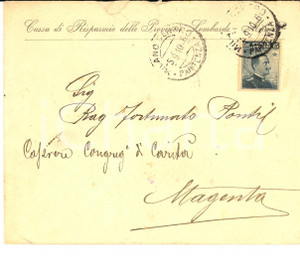 Cassa di Risparmio delle Provincie Lombarde
MILANO
PARTENZA
MILANO
PARTENZA
Sig
Rag Fortunato Pontil
Cassiere Congreg° di Carità
Magenta